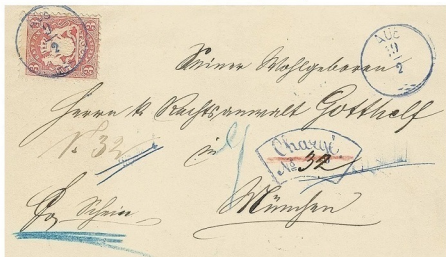 AUB
19
2
Seiner Wohlgeboren
Herrn k Rechtsanwalt Gotthelf
N. 32
in
Chargé
No 32
München
Schein